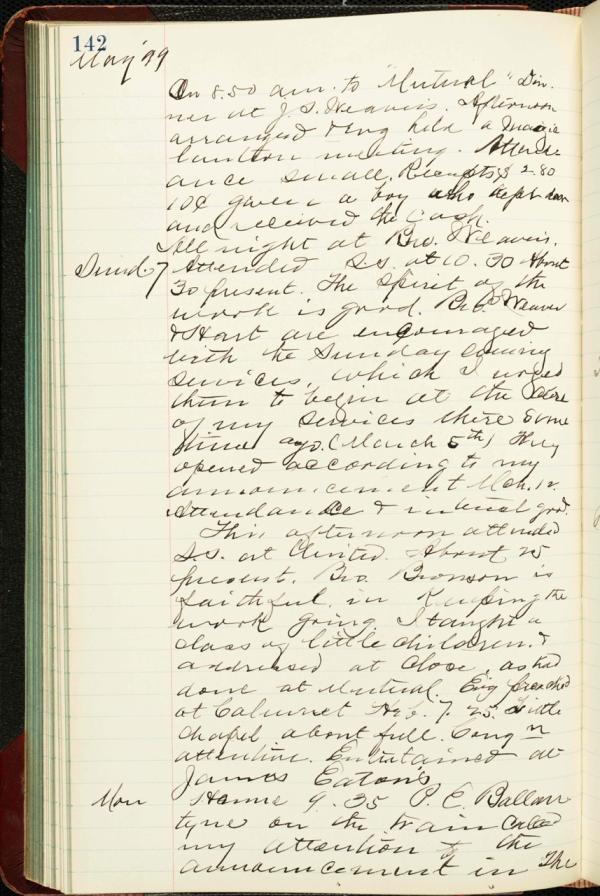 142
May '99
On 8.50 a.m. to "Mutual" Din-
ner at J. S. Weavers. Afternoon
arranged & Evg held a magic
lantern meeting. Attend-
ance small. Receipts $2.80
10¢ gave a boy who kept door
and received the Cash.
All night at Bro. Weavers.
Sund. 7 Attended S.S. at 10.30 About
30 present. The spirit of the
work is good. Bro. Weaver
& Hart are encouraged
with the Sunday evening
services, which I urged
them to begin at the close
of my services there some
time ago. (March 5th) They
opened according to my
announcement Mch. 12.
Attendance & interest good.
This afternoon attended
S.S. at Clinted. About 25
present. Bro. Bronson is
faithful in keeping the
work going. I taught a
class of little children. &
addressed at close, as had
done at Mutual. Evg preached
at Calumet Heb. 7.25. Little
chapel about full. Congn
attentive. Entertained at
James Eaton's
Mon Home 9.35 P. E. Ballan-
tyne on the train called
my attention to the
announcement in The